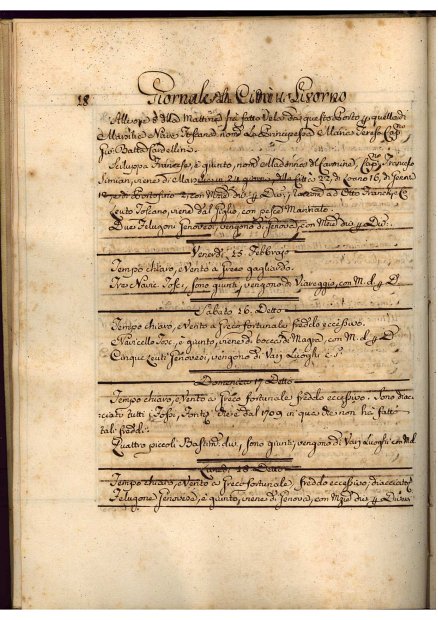 18 Giornale della Città di Livorno
Alle ore 2 della Mattina hà fatto Vela da questo Porto p quella di
Marsilia Nave Toscana nomta La Principessa Maria Teresa Capno
Gio Batta Candellini
Scluppa Francese, è giunto, nomta Madonna del Carmine, Capno Francesco
Simian, viene di Marsilia in
di Portofino
Leuto Toscano, viene dal Giglio, con pesce Marinato
Due Felugoni Genovesi, vengono di Genova, con Mrie div
Venerdi 15 Febbrajo
Tempo chiaro, e Vento a greco gagliardo
Tre Navic Tosci, sono giunti, vengono di Viareggio, con M. d. 4 D
Sabato 16. Detto
Tempo chiaro, e Vento a Greco fortunale freddo eccessivo.
Navicello Tosc, è giunto, viene di bocca di Magra, con M. d. 4 D
Cinque Leuti Genovesi, vengono di Varj Luoghi
Domenica 17 Detto
Tempo chiaro, e Vento a Greco fortunale freddo eccessivo. Sono diac-
ciati tutti i Fossi, Fonti, dal 1709 in qua non hà fatto
tali freddi
Quattro piccoli Bastimti div, sono giunti, vengono di Varj Luoghi con M.d
Lunedi 18 Detto
Tempo chiaro, e Vento a Greco fortunale, freddo eccessivo, diacciato
Felugone Genovese, è giunto, viene di Genova, con Mrie div 4 Diversi